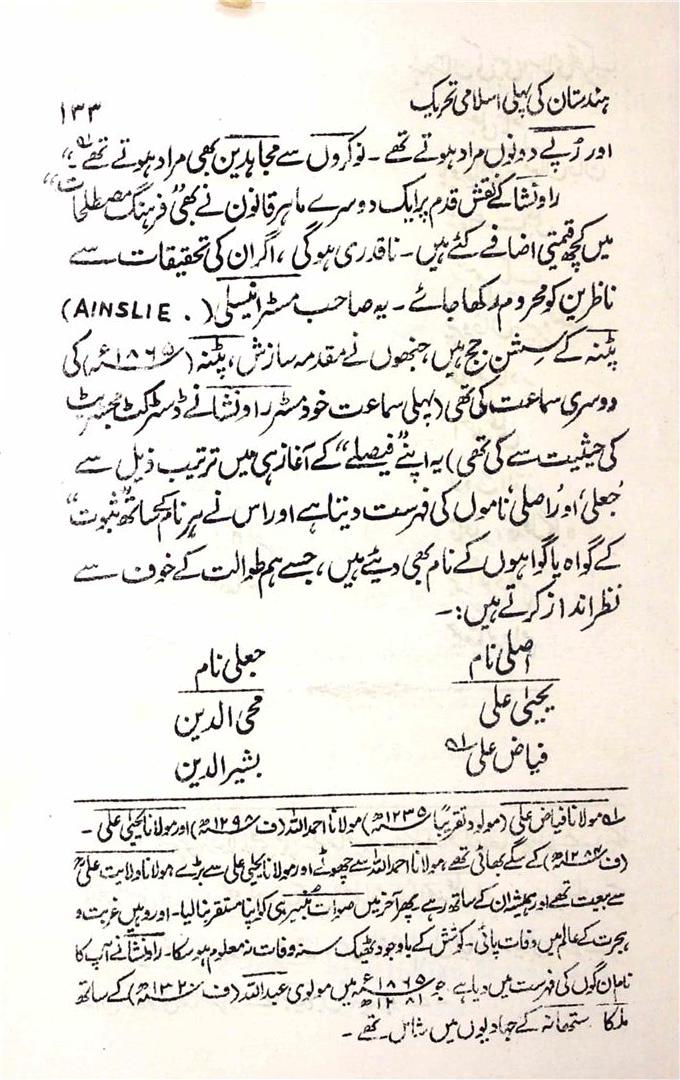 ہندستان کی پہلی اسلامی تحریک ۱۳۳
اور رُپے دونوں مراد ہوتے تھے ۔ نوکروں سے مجاہدین بھی مراد ہوتے تھے"
راونشا کے نقش قدم پر ایک دوسرے ماہر قانون نے بھی "فرہنگ مصطلحات"
میں کچھ قیمتی اضافے کئے ہیں ۔ ناقدری ہوگی ، اگر ان کی تحقیقات سے
ناظرین کو محروم رکھا جائے ۔ یہ صاحب مسٹر اینسلی (AINSLIE .)
پٹنہ کے سشن جج ہیں جنھوں نے مقدمہ سازش ، پٹنہ (۱۸۶۵ء) کی
دوسری سماعت کی تھی (پہلی سماعت خود مسٹر راونشا نے ڈسٹرکٹ مجسٹریٹ
کی حیثیت سے کی تھی) یہ اپنے "فیصلے" کے آغاز ہی میں ترتیب ذیل سے
'جعلی' اور 'اصلی ناموں کی فہرست دیتا ہے اور اس نے ہر نام کے ساتھ "ثبوت"
کے گواہ یا گواہوں کے نام بھی دیئے ہیں ، جسے ہم طوالت کے خوف سے
نظر انداز کرتے ہیں :۔
اصلی نام جعلی نام
یحییٰ علی محی الدین
فیاض علی ؎۱ بشیر الدین
؎۱ مولانا فیاض علی (مولود تقریبًا ۱۲۳۵ھ) مولانا احمد اللہ (ف ۱۲۹۸ھ) اور مولانا یحییٰ علی ۔
(ف ۱۲۸۴ھ) کے سگے بھائی تھے ، مولانا احمد اللہ سے چھوٹے اور مولانا یحییٰ علی سے بڑے مولانا ولایت علیؒ
سے بیعت تھے اور ہمیشہ ان کے ساتھ رہے پھر آخر میں صوات بنیر ہی کو اپنا مستقر بنا لیا ۔ اور وہیں غربت و
ہجرت کے عالم میں وفات پائی ۔ کوشش کے باوجود ٹھیک سنہ وفات نہ معلوم ہو سکا ۔ راونشا نے آپ کا
نام ان لوگوں کی فہرست میں دیا ہے جو ۱۸۶۵ء ۱۲۸۱ھ میں مولوی عبد اللہ (ف ۱۳۲۰ھ) کے ساتھ
ملکا ستھانہ کے جہادیوں میں شامل تھے ۔